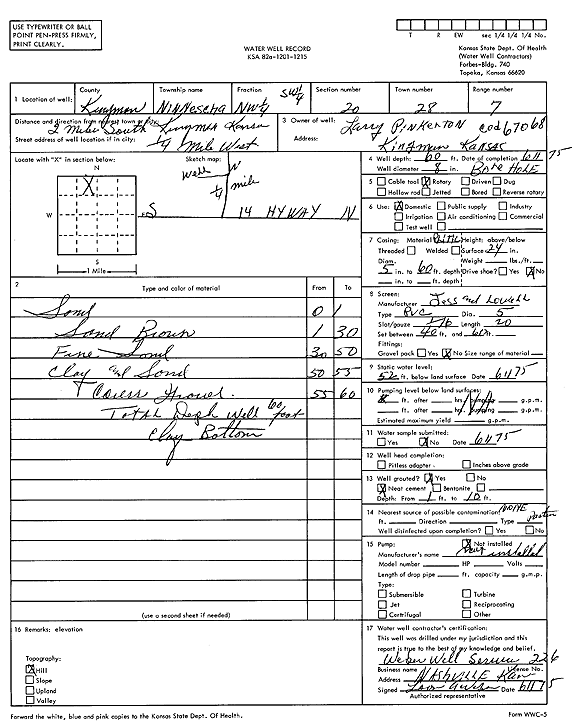 USE TYPEWRITER OR BALL
POINT PEN-PRESS FIRMLY,
PRINT CLEARLY.
WATER WELL RECORD
KSA 82a-1201-1215
T R EW sec 1/4 1/4 1/4 No.
Kansas State Dept. Of Health
(Water Well Contractors)
Forbes-Bldg. 740
Topeka, Kansas 66620
1 Location of well:
County Kingman
Township name Ninnescha
Fraction NW¼ SW¼
Section number 20
Town number 28
Range number 7
Distance and direction from nearest town or city:
2 Miles South Kingman Kansas
Street address of well location if in city: ¼ Mile West
3 Owner of well: Larry Pinkerton
Address: Kingman Kansas Cod 67068
Locate with "X" in section below:
N
X
W
S
1 Mile
Sketch map:
Well N
¼ mile
S 14 HYWAY N
4 Well depth: 60 ft. Date of completion 6/11/75
Well diameter 8 in. Bore Hole
5 Cable tool X Rotary Driven Dug
Hollow rod Jetted Bored Reverse rotary
6 Use: X Domestic Public supply Industry
Irrigation Air conditioning Commercial
Test well
7 Casing: Material Height: above/below
Threaded Welded Surface 24 in.
Diam. Weight lbs./ft.
5 in. to 60 ft. depth Drive shoe? Yes X No
in. to ft. depth
2 Type and color of material From To
Sand 0 1
Sand Brown 1 30
Fine Sand 30 50
Clay and Sand 50 55
55 60
Total Depth Well 60 foot
Clay Bottom
(use a second sheet if needed)
8 Screen:
Manufacturer Jess and Lowell
Type PVC Dia. 5
Slot/gauze 1/16 Length 20
Set between 40 ft. and 60 ft.
Fittings:
Gravel pack Yes X No Size range of material
9 Static water level:
52 ft. below land surface Date 6/11/75
10 Pumping level below land surfaces:
ft. after hrs. pumping g.p.m.
ft. after hrs. pumping g.p.m.
Estimated maximum yield g.p.m.
11 Water sample submitted:
Yes X No Date 6/11/75
12 Well head completion:
Pitless adapter - Inches above grade
13 Well grouted? X Yes No
X Neat cement Bentonite
Depth: From 1 ft. to 10 ft.
14 Nearest source of possible contamination: NONE
ft. Direction Type Pasture
Well disinfected upon completion? Yes No
15 Pump: X Not installed
Manufacturer's name Not installed
Model number HP Volts
Length of drop pipe ft. capacity g.m.p.
Type:
Submersible Turbine
Jet Reciprocating
Centrifugal Other
16 Remarks: elevation
Topography:
X Hill
Slope
Upland
Valley
17 Water well contractor's certification:
This well was drilled under my jurisdiction and this
report is true to the best of my knowledge and belief.
Weber Well Service 226
Business name License No.
Address Nashville Kan
Signed Date 6/11/75
Authorized representative
Forward the white, blue and pink copies to the Kansas State Dept. Of Health. Form WWC-5